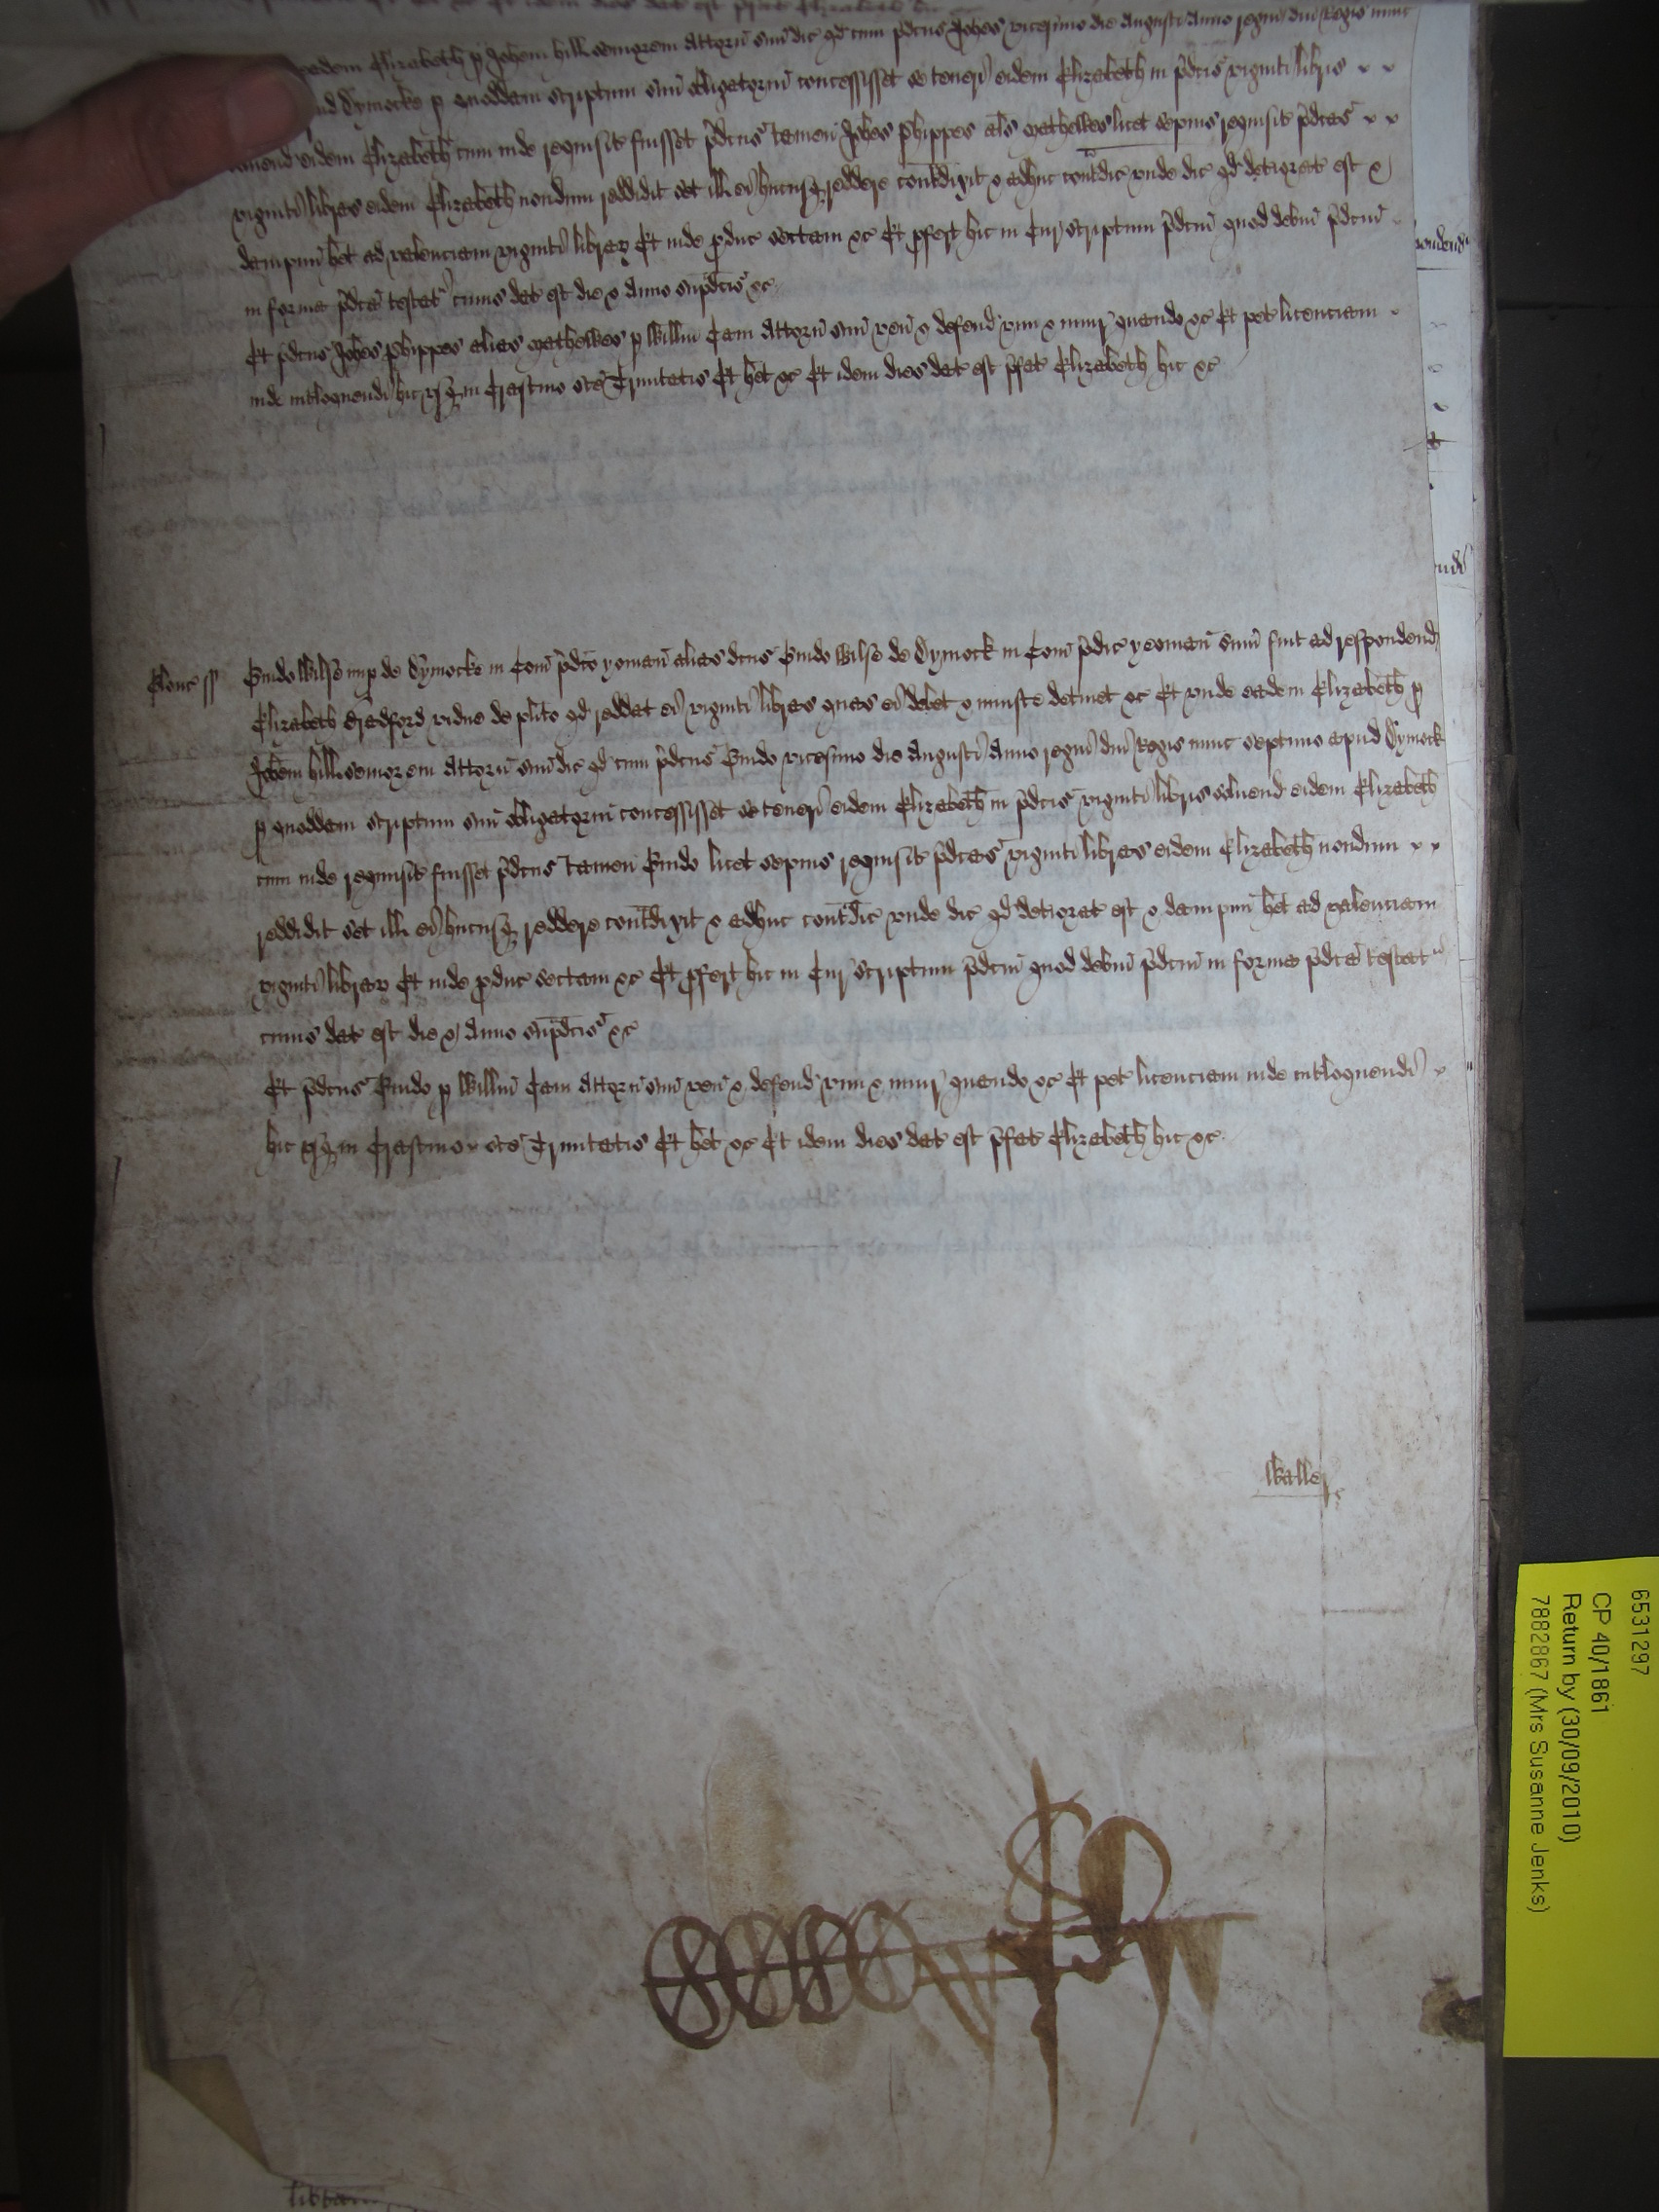 eadem Elizabeth p Johem hill seniorem Attorn suu dic qd cum pdcus Johes vicesimo die Augusti Anno regni dni Regis nunc
Dymocke p quoddam scriptum suu obligatoriu concessisset se teneri eidem Elizabeth in pdcis viginti libris
eidem Elizabeth cum inde requisit fuisset pdcus tamen Johes Phippes als Mathewes licet sepius requisit pdcas
viginti libras eidem Elizabeth nondum reddidit set ill ei hucusq reddere contdixit & adhuc contdic unde dic qd detiorat est &
dampnu het ad valenciam viginti librar Et inde pduc sectam &c Et pfert hic in Cur scriptum pdcum quod debitu pdcum
in forma pdca testat cuius dat est die & Anno supdcis &c
Et pdcus Johes Phippes alias Mathewes p Willm Cam Attorn suu ven & defend vim & iniur quando &c Et pet licenciam
inde intloquendi hic usq in Crastino sce Trinitatis Et het &c Et idem dies dat est pfat Elizabeth hic &c
Glouc ss Guido Wilse nup de Dymocke in Com pdco yoman alias dcus Guido Wilse de Dymock in Com pdic yeoman sum fuit ad respondend
Elizabeth Bradford vidue de plito qd reddat ei viginti libras quas ei debet & iniuste detinet &c Et unde eadem Elizabeth p
Johem hill seniorem Attorn suu dic qd cum pdcus Guido vicesimo die Augusti Anno regni dni Regis nunc septimo apud Dymock
p quoddam scriptum suu obligatoriu concessisset se teneri eidem Elizabeth in pdcis viginti libris solvend eidem Elizabeth
cum inde requisit fuisset pdcus tamen Guido licet sepius requisit pdcas viginti libras eidem Elizabeth nondum
reddidit set ill ei hucusq reddere contdixit & adhuc contdic unde dic qd detiorat est & dampnu het ad valenciam
viginti librar Et inde pduc sectam &c Et pfert hic in Cur scriptum pdcum quod debitu pdcum in forma pdca testat
cuius dat est die & Anno supdcis &c
Et pdcus Guido p Willm Cam Attorn suu ven & defend vim & iniur quando &c Et pet licenciam inde intloquendi
hic usq in Crastino sce Trinitatis Et het &c Et idem dies dat est pfat Elizabeth hic &c
Waller
6531297
CP 40/1861
Return by (30/09/2010)
7882867 (Mrs Susanne Jenks)